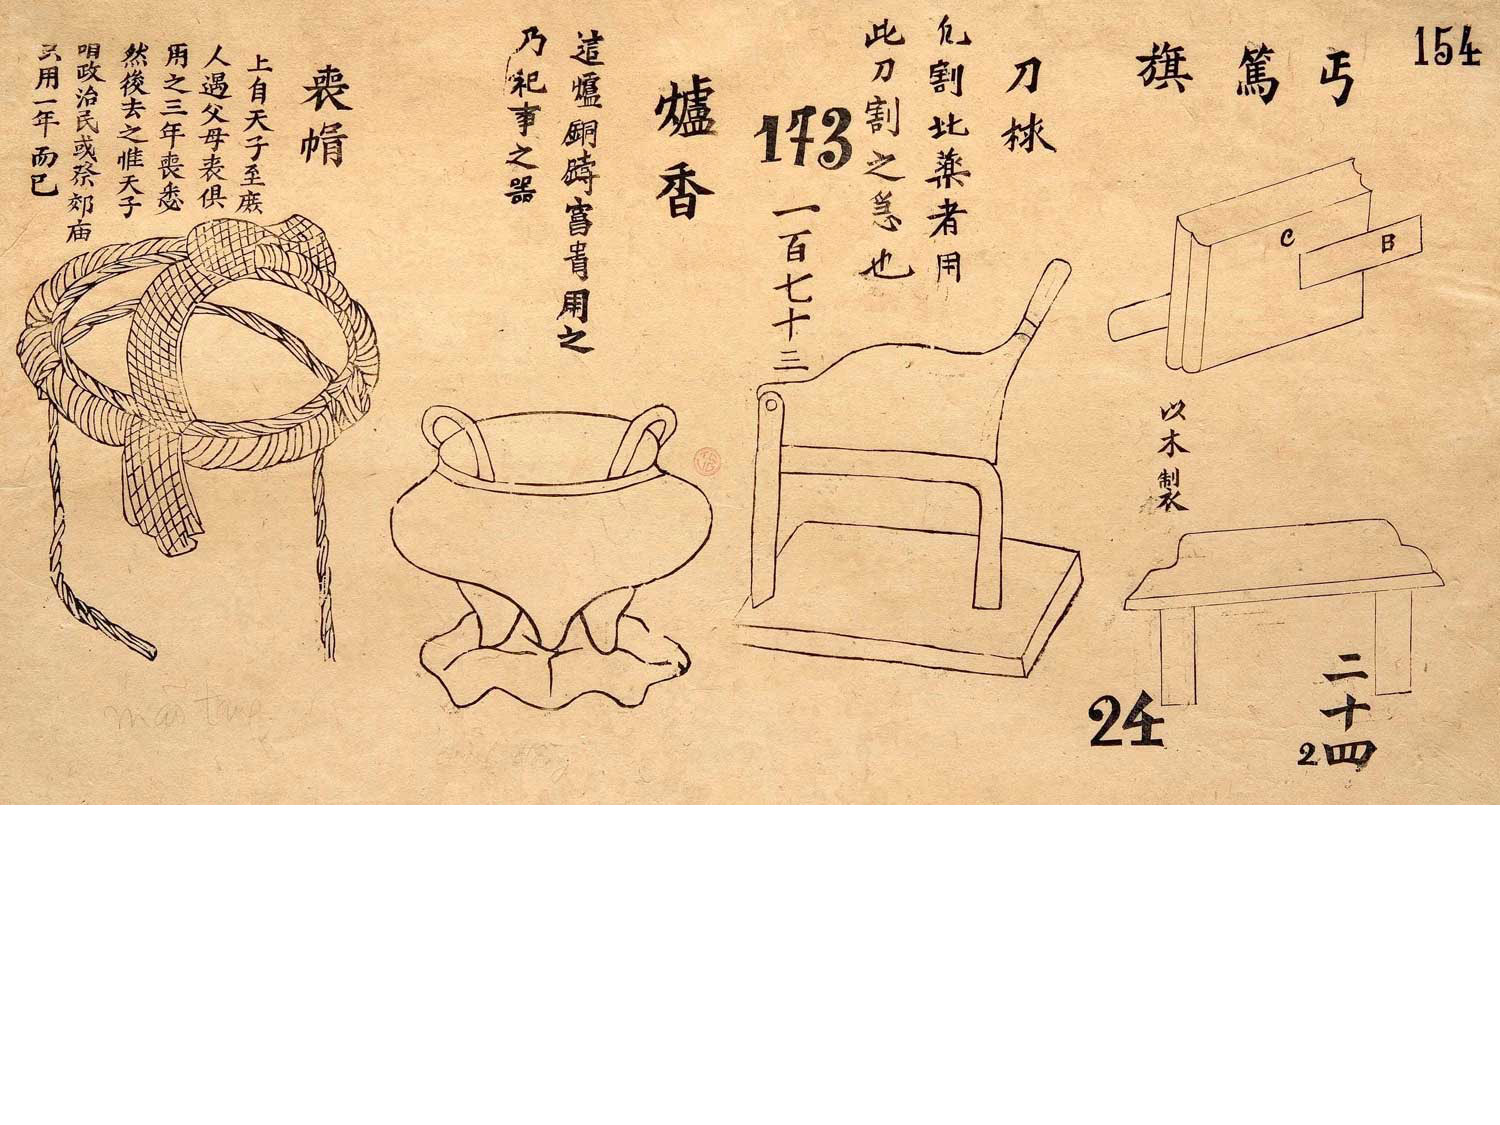 154
丐
篤
旗
C
B
以木製
24
二十四
2
刀梂
凢割北藥者用
此刀割之急也
173
一百七十三
爐香
這爐銅時富貴用之
乃祀事之器
喪㡏
上自天子至庻
人遇父母丧俱
用之三年喪悉
然後去之惟天子
政治民或祭郊庙
只用一年而已